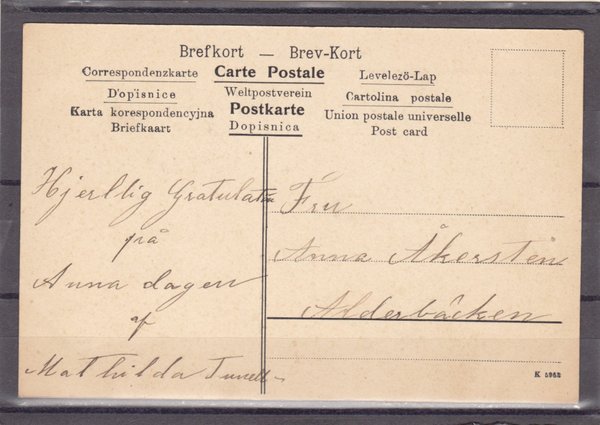 Brefkort — Brev-Kort
Correspondenzkarte Carte Postale Levelező-Lap
Dopisnice Weltpostverein Cartolina postale
Karta korespondencyjna Postkarte Union postale universelle
Briefkaart Dopisnica Post card
Hjertlig Gratulation
på
Anna dagen
af
Mathilda Tunell
Fru
Anna Åkersten
Alderbäcken
K 5962